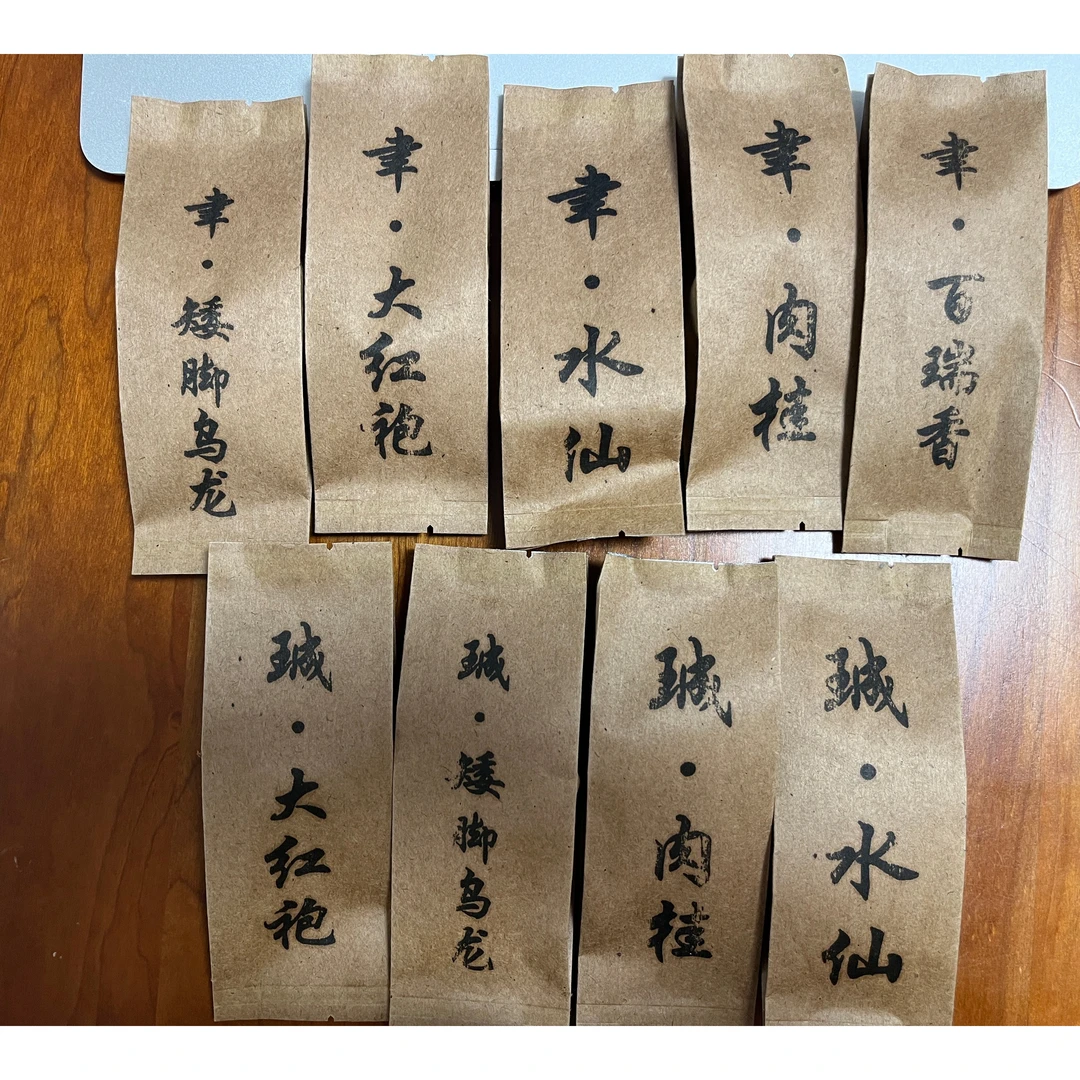 聿·矮脚乌龙
聿·大红袍
聿·水仙
聿·肉桂
聿·百瑞香
珹·大红袍
珹·矮脚乌龙
珹·肉桂
珹·水仙